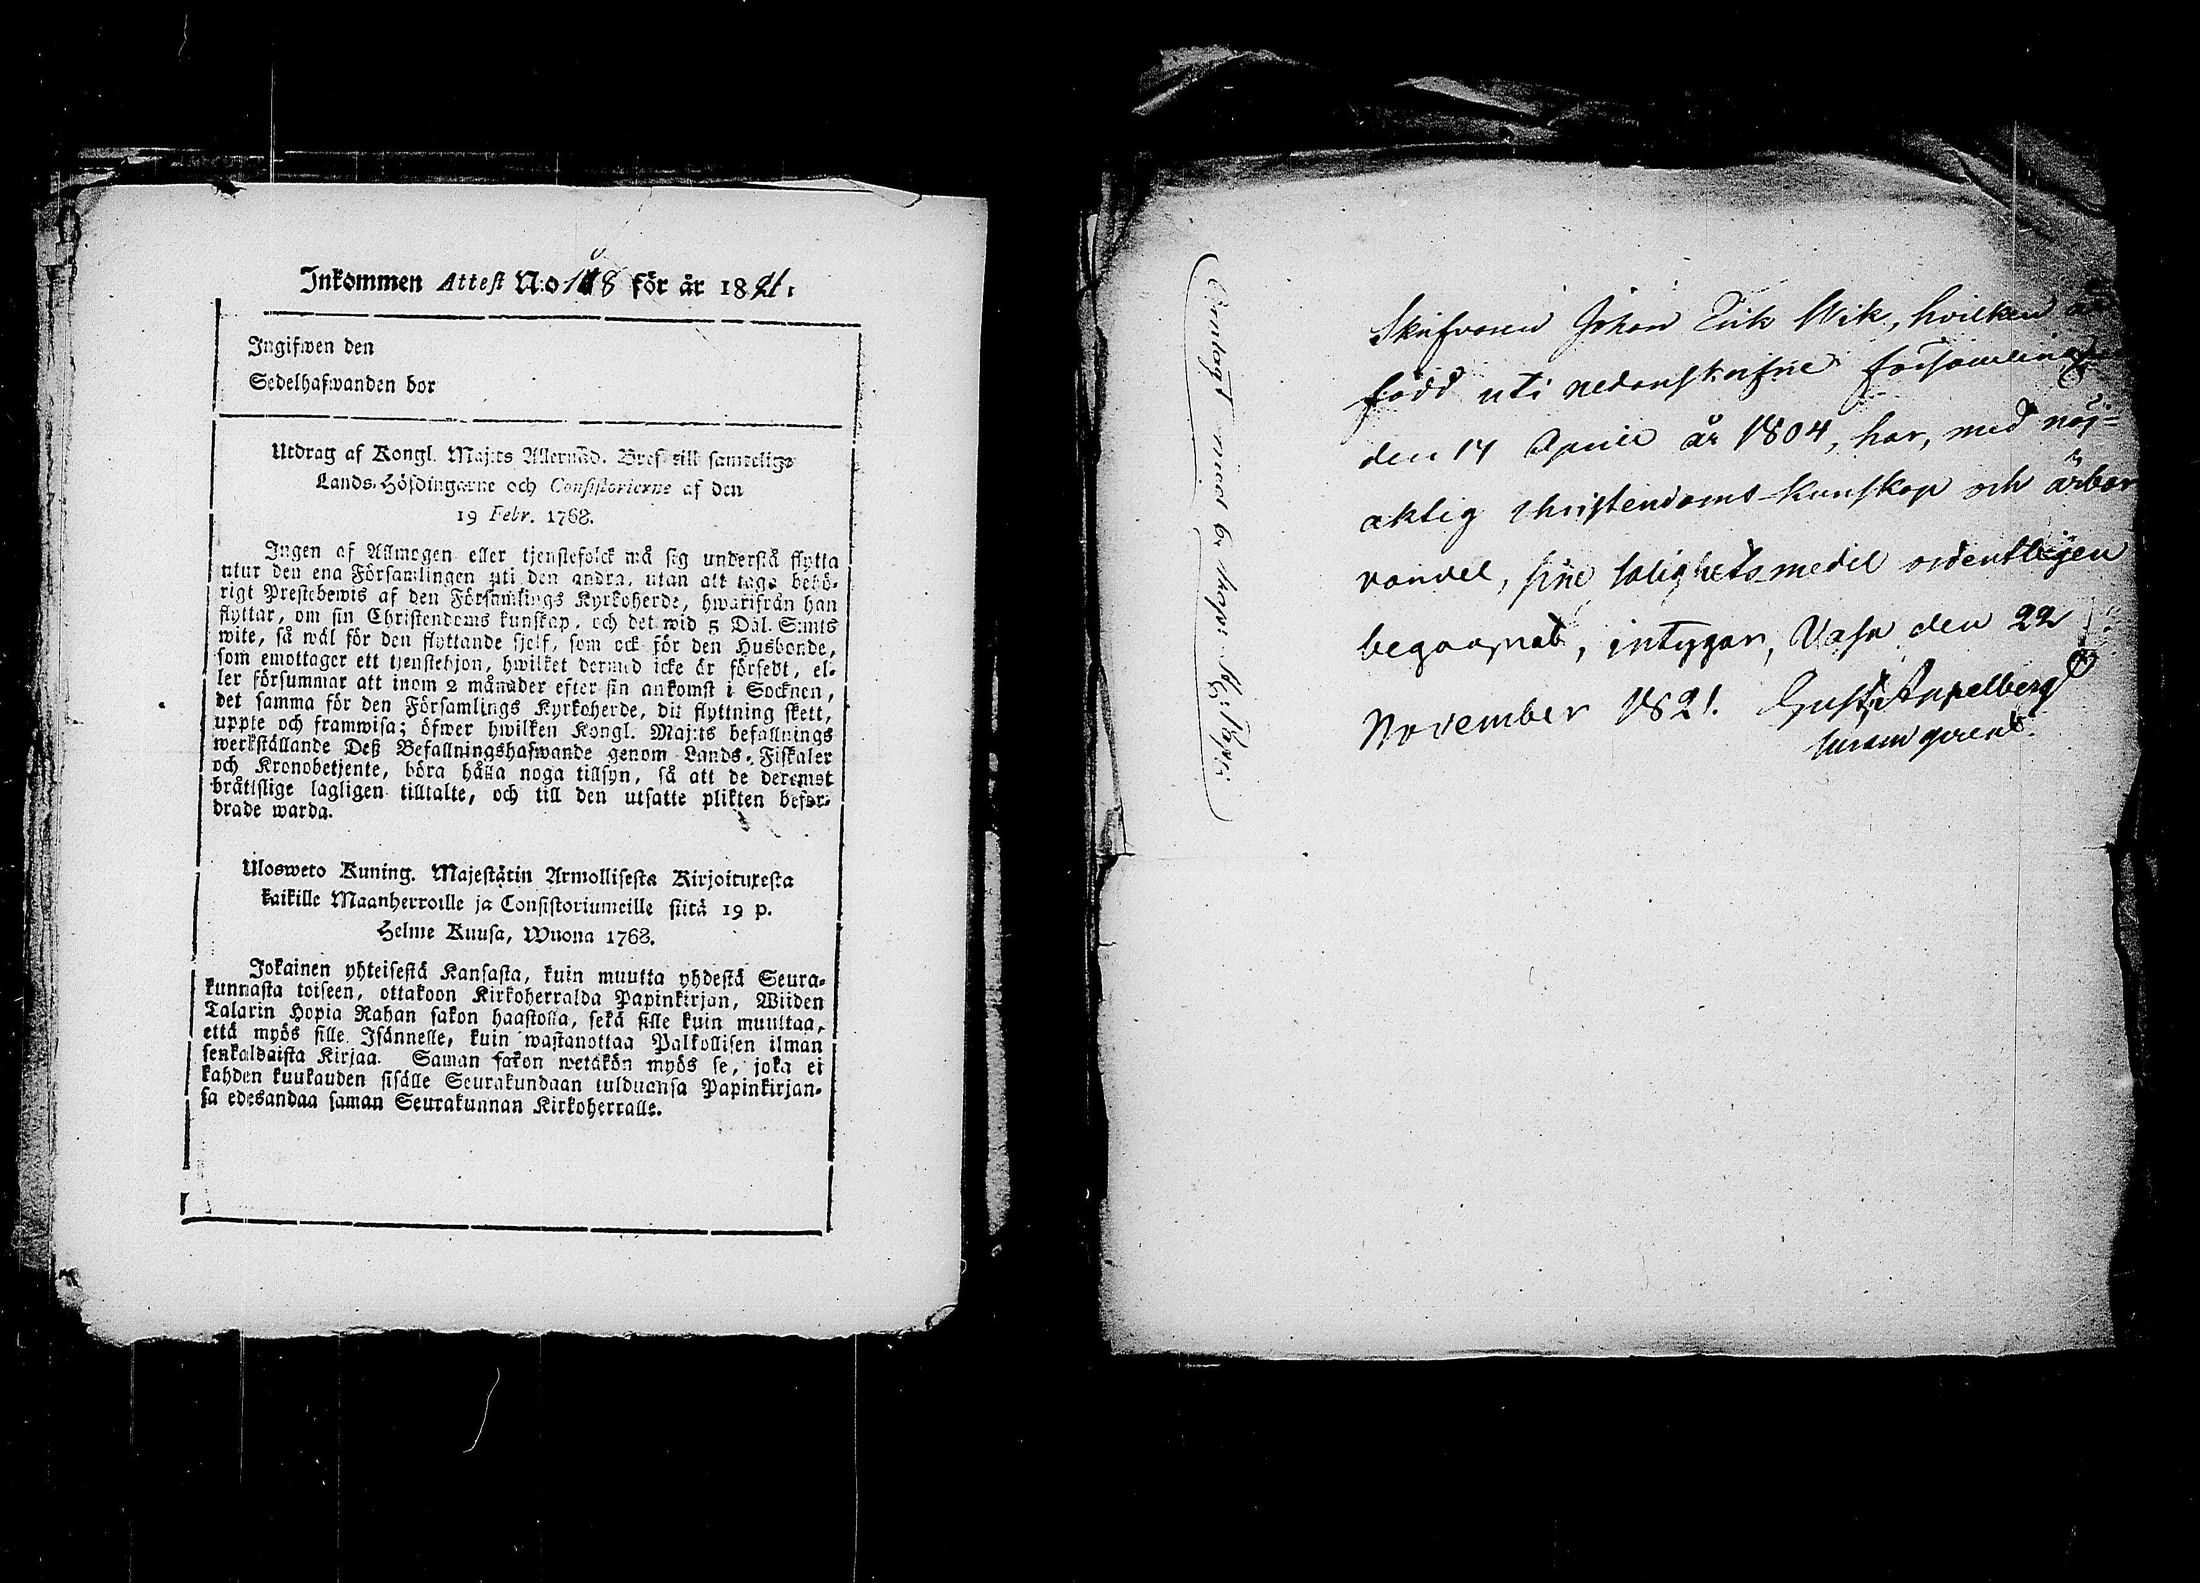 Inkommen Attest N:o 118 för år 1821.
Ingifwen den
Sedelhafwanden bor
Utdrag af Kongl. Maj:ts Allernåd. Bref till samtelige
Lands-Höfdingarne och Consistorierne af den
19 Febr. 1768.
Ingen af Allmogen eller tjenstefolck må sig understå flytta
utur den ena Församlingen uti den andra, utan att taga behö-
rigt Prestebewis af den Församlings Kyrkoherde, hwarifrån han
flyttar, om sin Christendoms kunskap, och det wid 5 Dal. S:mts
wite, så wäl för den flyttande sjelf, som ock för den Husbonde,
som emottager ett tjenstehjon, hwilket dermed icke är försedt, el-
ler försummar att inom 2 månader efter sin ankomst i Socknen,
det samma för den Församlings Kyrkoherde, dit flyttning skett,
uppte och framwisa; öfwer hwilken Kongl. Maj:ts befallnings
werkställande Deß Befallningshafwande genom Lands-Fiskaler
och Kronobetjente, böra hålla noga tillsyn, så att de deremot
bråtislige lagligen tilltalte, och till den utsatte plikten befor-
drade warda.
Ulosweto Kuning. Majestätin Armollisesta Kirjoituxesta
kaikille Maanherroille ja Consistoriumeille siitä 19 p.
Helme Kuusa, Wuona 1768.
Jokainen yhteisestä Kansasta, kuin muutta yhdestä Seura-
kunnasta toiseen, ottakoon Kirkoherralda Papinkirjan, Wiiden
Talarin Hopia Rahan sakon haastolla, sekä sille kuin muuttaa,
että myös sille Isännelle, kuin wastanottaa Palkollisen ilman
senkaldaista Kirjaa. Saman sakon wetäkön myös se, joka ei
kahden kuukauden sisälle Seurakundaan tulduansa Papinkirjan-
sa edesandaa saman Seurakunnan Kirkoherralle.
Skrifvaren Johan Erik Wik, hvilken är
född uti nedanskrifne församling
den 14 April år 1804, har, med nöj-
aktig Christendoms kunskap och ärbar
vandel, sine salighetsmedel ordentligen
begagnat, intygar, Vasa den 22
November 1821. Gust. Appelberg